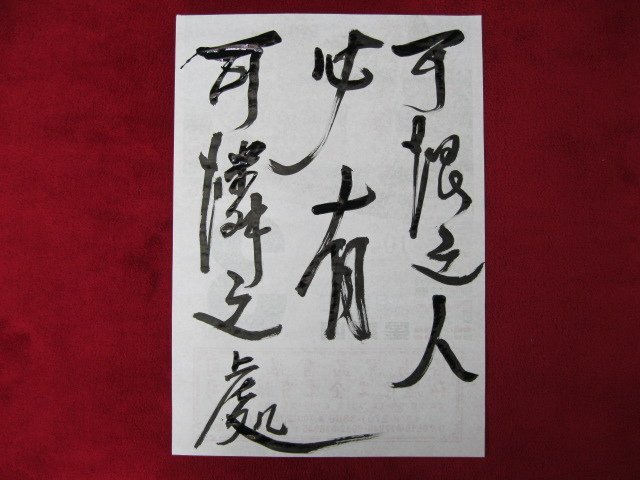 可恨之人
必有
可憐之處